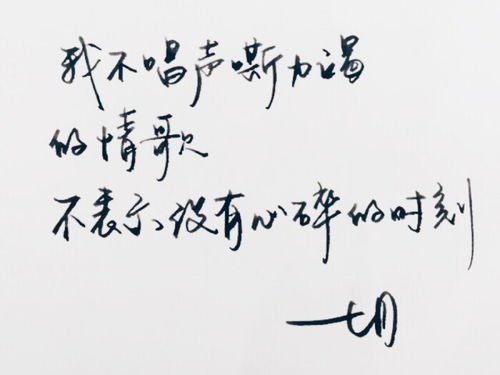 我不唱声嘶力竭
的情歌
不表示没有心碎的时刻
七月